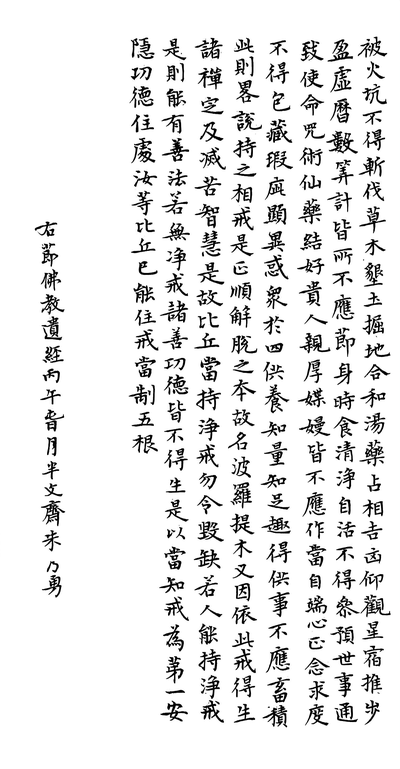 被火坑不得斬伐草木墾土掘地合和湯藥占相吉凶仰觀星宿推步
盈虛曆數筭計皆所不應節身時食清淨自活不得參預世事通
致使命咒術仙藥結好貴人親厚媟嫚皆不應作當自端心正念求度
不得包藏瑕疵顯異惑衆於四供養知量知足趣得供事不應畜積
此則畧說持戒之相戒是正順解脫之本故名波羅提木叉因依此戒得生
諸禪定及滅苦智慧是故比丘當持淨戒勿令毀缺若人能持淨戒
是則能有善法若無淨戒諸善功德皆不得生是以當知戒為苐一安
隱功德住處汝等比丘已能住戒當制五根
右節佛教遺經丙午
月半文齋朱乃勇